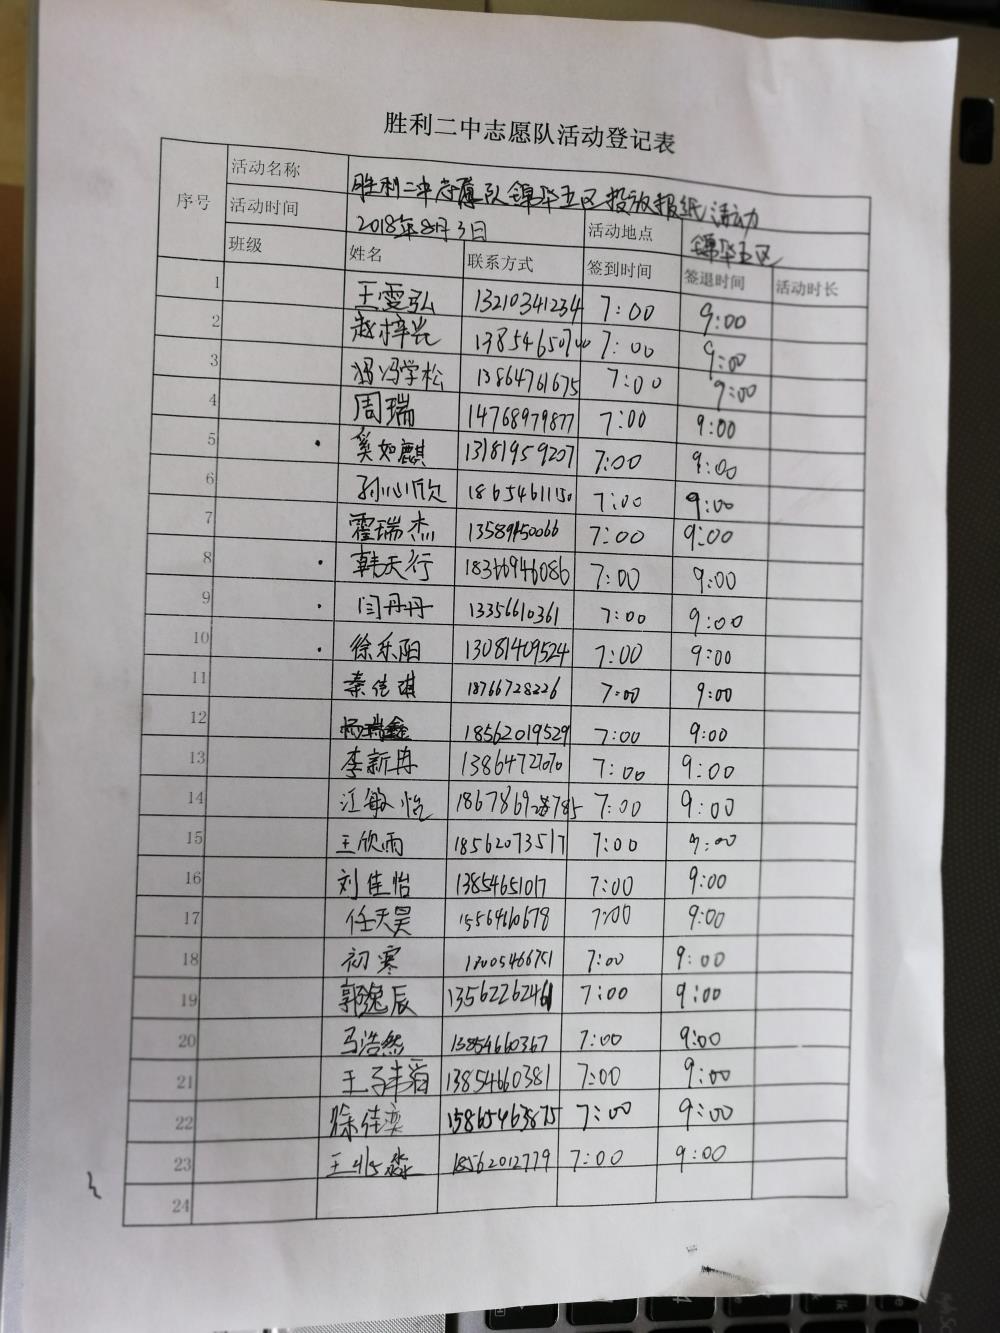 胜利二中志愿队活动登记表
序号 活动名称 胜利二中志愿队锦华五区投放报纸活动
活动时间 2018年8月3日 活动地点 锦华五区
班级 姓名 联系方式 签到时间 签退时间 活动时长
1 王雯弘 13210341234 7:00 9:00
2 赵梓岚 13854650700 7:00 9:00
3 冯学松 13864761675 7:00 9:00
4 周瑞 14768979877 7:00 9:00
5 奚如麒 13181959207 7:00 9:00
6 孙心欣 18654611150 7:00 9:00
7 霍瑞杰 13589450066 7:00 9:00
8 韩天行 18366946086 7:00 9:00
9 闫丹丹 13356610361 7:00 9:00
10 徐乐阳 13081409524 7:00 9:00
11 秦佳琪 18766728226 7:00 9:00
12 杨瑞鑫 18562019529 7:00 9:00
13 李新冉 13864727070 7:00 9:00
14 江敏怡 7:00 9:00
15 王欣雨 18562073517 7:00 9:00
16 刘佳怡 13854651017 7:00 9:00
17 任天昊 15564660678 7:00 9:00
18 初寒 7:00 9:00
19 郭逸辰 13562262461 7:00 9:00
20 马浩然 13854660367 7:00 9:00
21 王子 13854660381 7:00 9:00
22 徐佳奕 15865463875 7:00 9:00
23 王 淼 18562012779 7:00 9:00
24